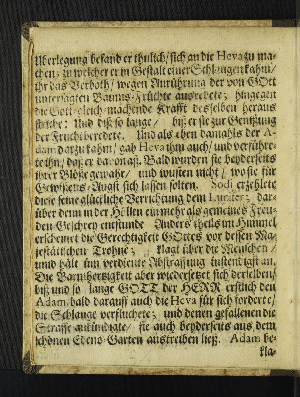 Uberlegung befand er thulich / sich an die Heva zu ma-
chen; zu welcher er in Gestalt einer Schlangen kahm /
ihr das Verboth / wegen Anrührung der von GOtt
untersagten Baums-Früchte ausredete; hingegen
die Gott-gleich-machende Krafft desselben heraus
striche: Und diß so lange / biß er sie zur Geniessung
der Frucht beredete. Und als eben damahls der A-
dam darzu kahm / gab Heva ihm auch / und verführe-
te ihn / daß er davon aß. Bald wurden sie beyderseits
ihrer Blösse gewahr / und wusten nicht / wo sie für
Gewissens-Angst sich lassen solten. Sodi erzehlete
diese seine glückliche Verrichtung dem Lucifer; dar-
über denn in der Höllen ein mehr als gemeines Freu-
den Geschrey entstunde Anders theils im Himmel
erscheinet die Gerechtigkeit GOttes vor dessen Ma-
jestätischen Trohne; klagt über die Menschen /
und hält um verdiente Abstraffung instendigst an.
Die Barmhertzigkeit aber wiedersetzet sich derselben /
biß und so lange GOTT der HERR erstlich den
Adam bald darauff auch die Heva für sich forderte /
die Schlange verfluchete; und denen gefallenen die
Straffe ankündigte / sie auch beyderseits aus dem
schönen Edens-Garten austreiben ließ. Adam be-
kla-